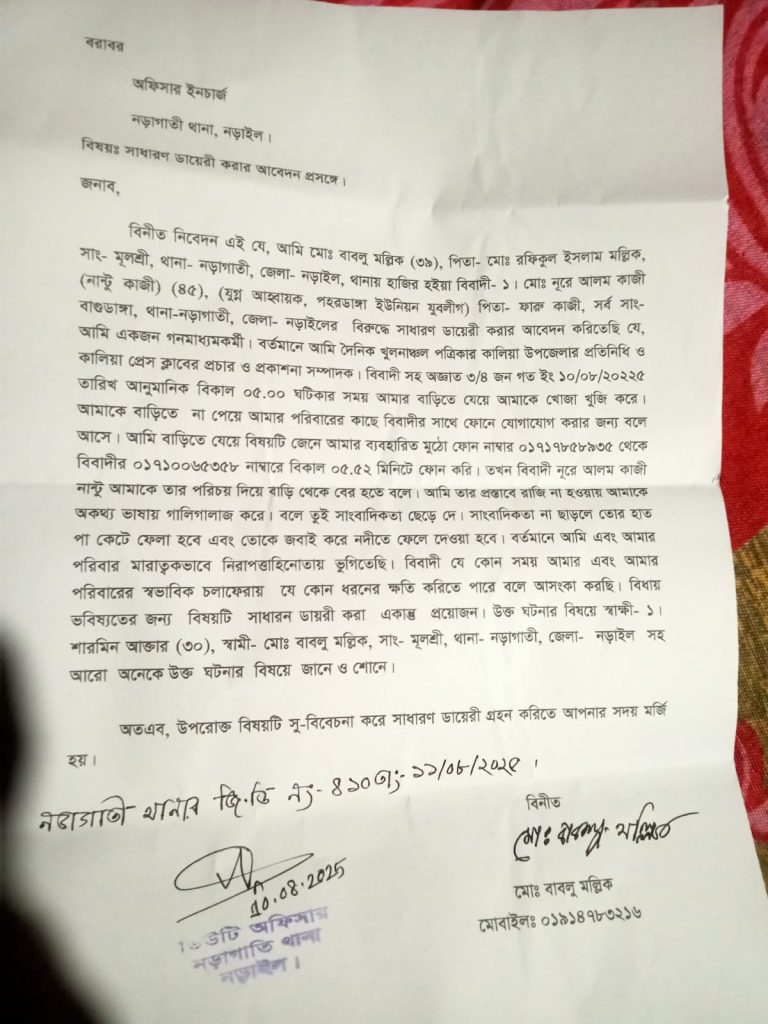 বরাবর
অফিসার ইনচার্জ
নড়াগাতী থানা, নড়াইল।
বিষয়ঃ সাধারণ ডায়েরী করার আবেদন প্রসঙ্গে।
জনাব,
বিনীত নিবেদন এই যে, আমি মোঃ বাবলু মল্লিক (৩৯), পিতা- মোঃ রফিকুল ইসলাম মল্লিক,
সাং- মূলশ্রী, থানা- নড়াগাতী, জেলা- নড়াইল, থানায় হাজির হইয়া বিবাদী- ১। মোঃ নূরে আলম কাজী
(নান্টু কাজী) (৪৫), (যুগ্ন আহ্বায়ক, পহরডাঙ্গা ইউনিয়ন যুবলীগ) পিতা- ফারু কাজী, সর্ব সাং-
বাগুডাঙ্গা, থানা-নড়াগাতী, জেলা- নড়াইলের বিরুদ্ধে সাধারণ ডায়েরী করার আবেদন করিতেছি যে,
আমি একজন গনমাধ্যমকর্মী। বর্তমানে আমি দৈনিক খুলনাঞ্চল পত্রিকার কালিয়া উপজেলার প্রতিনিধি ও
কালিয়া প্রেস ক্লাবের প্রচার ও প্রকাশনা সম্পাদক। বিবাদী সহ অজ্ঞাত ৩/৪ জন গত ইং ১০/০৮/২০২২৫
তারিখ আনুমানিক বিকাল ০৫.০০ ঘটিকার সময় আমার বাড়িতে যেয়ে আমাকে খোজা খুজি করে।
আমাকে বাড়িতে না পেয়ে আমার পরিবারের কাছে বিবাদীর সাথে ফোনে যোগাযোগ করার জন্য বলে
আসে। আমি বাড়িতে যেয়ে বিষয়টি জেনে আমার ব্যবহারিত মুঠো ফোন নাম্বার ০১৭১৭৮৫৮৯৩৫ থেকে
বিবাদীর ০১৭১০০৬৫৩৫৮ নাম্বারে বিকাল ০৫.৫২ মিনিটে ফোন করি। তখন বিবাদী নূরে আলম কাজী
নান্টু আমাকে তার পরিচয় দিয়ে বাড়ি থেকে বের হতে বলে। আমি তার প্রস্তাবে রাজি না হওয়ায় আমাকে
অকথ্য ভাষায় গালিগালাজ করে। বলে তুই সাংবাদিকতা ছেড়ে দে। সাংবাদিকতা না ছাড়লে তোর হাত
পা কেটে ফেলা হবে এবং তোকে জবাই করে নদীতে ফেলে দেওয়া হবে। বর্তমানে আমি এবং আমার
পরিবার মারাত্বকভাবে নিরাপত্তাহিনোতায় ভুগিতেছি। বিবাদী যে কোন সময় আমার এবং আমার
পরিবারের স্বভাবিক চলাফেরায় যে কোন ধরনের ক্ষতি করিতে পারে বলে আসংকা করছি। বিধায়
ভবিষ্যতের জন্য বিষয়টি সাধারন ডায়রী করা একান্ত প্রয়োজন। উক্ত ঘটনার বিষয়ে স্বাক্ষী- ১।
শারমিন আক্তার (৩০), স্বামী- মোঃ বাবলু মল্লিক, সাং- মূলশ্রী, থানা- নড়াগাতী, জেলা- নড়াইল সহ
আরো অনেকে উক্ত ঘটনার বিষয়ে জানে ও শোনে।
অতএব, উপরোক্ত বিষয়টি সু-বিবেচনা করে সাধারণ ডায়েরী গ্রহন করিতে আপনার সদয় মর্জি
হয়।
নড়াগাতী থানার জি.ডি নং- ৪১০ তাং- ১১/০৮/২০২৫।
বিনীত
মোঃ বাবলু মল্লিক
মোঃ বাবলু মল্লিক
মোবাইলঃ ০১৯১৪৭৮৩২১৬
10.08.2025
ডিউটি অফিসার
নড়াগাতি থানা
নড়াইল।